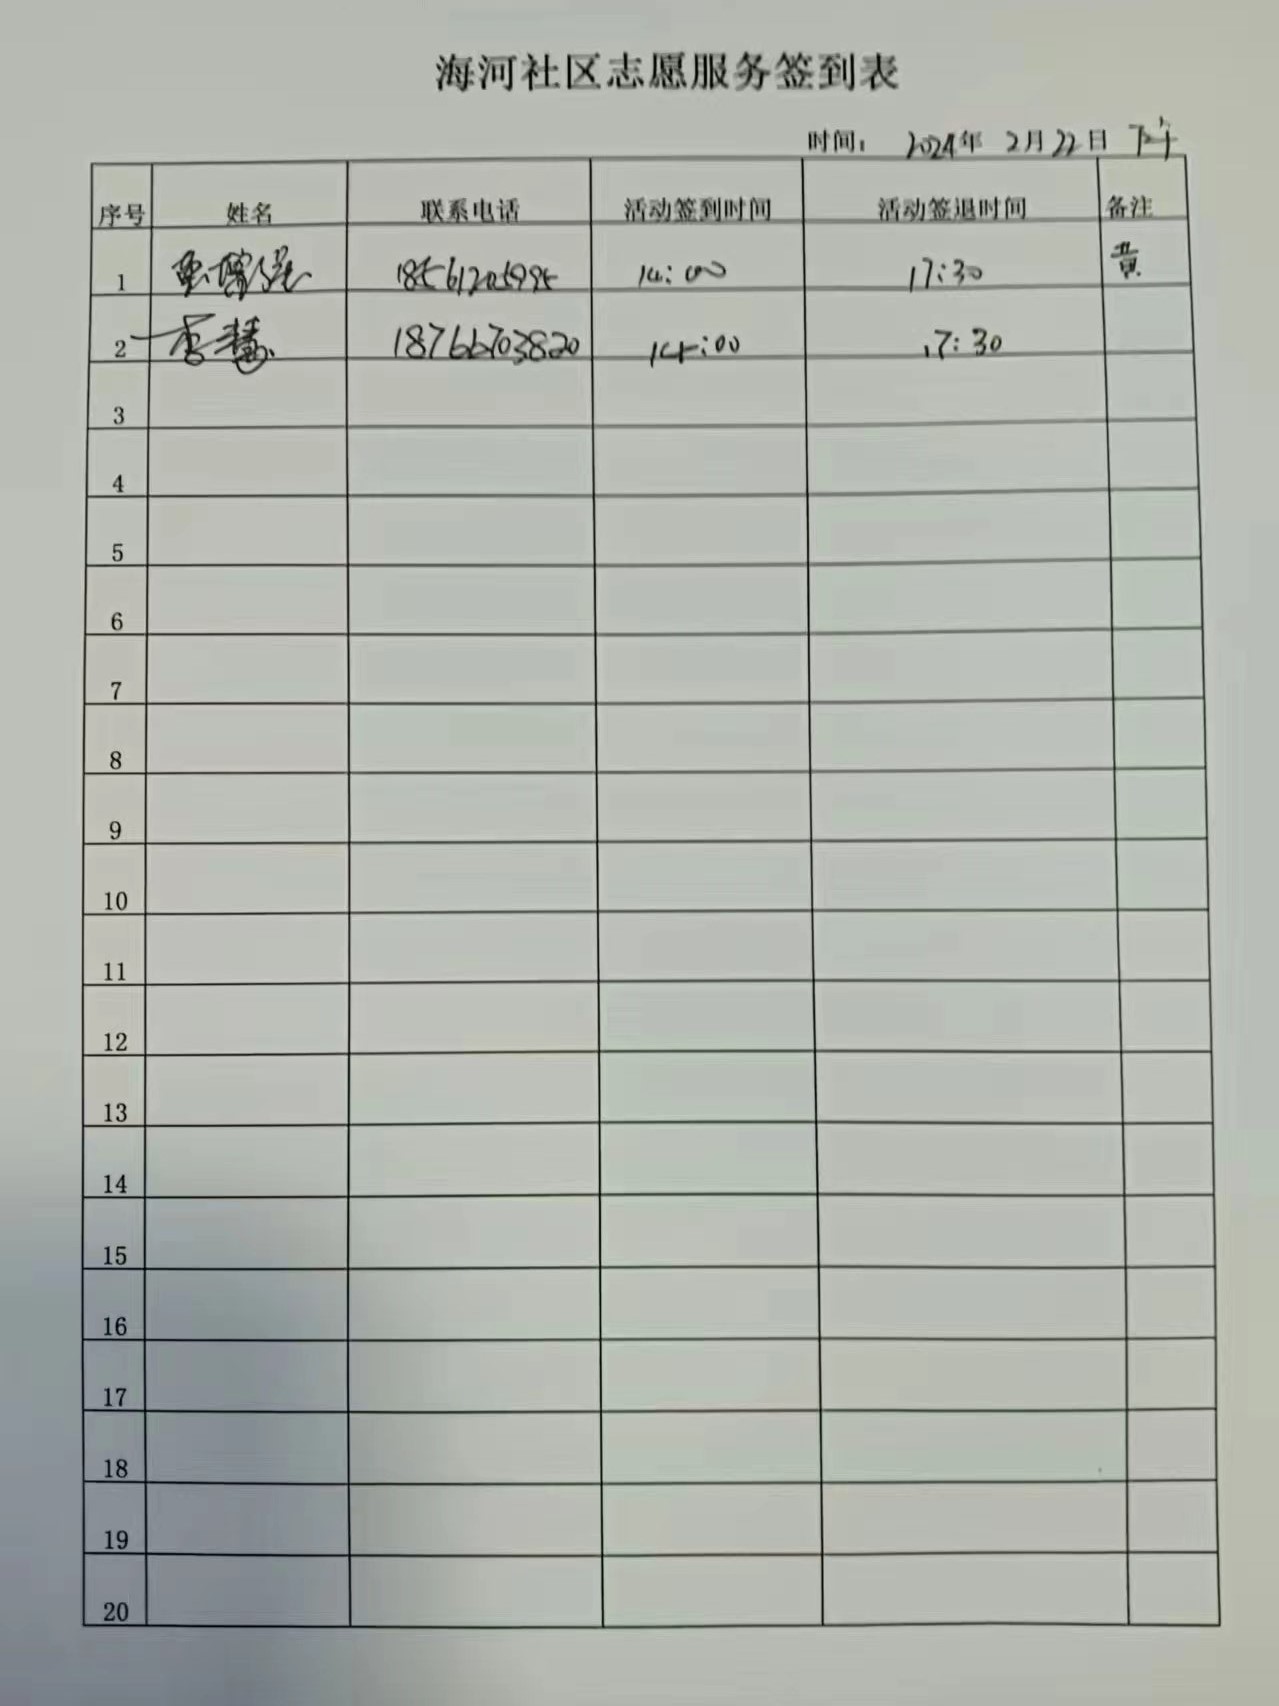 海河社区志愿服务签到表
时间： 2024年 2月22日 下午
序号 姓名 联系电话 活动签到时间 活动签退时间 备注
1 18561205995 14:00 17:30 黄
2 李慧 18766703820 14:00 17:30
3
4
5
6
7
8
9
10
11
12
13
14
15
16
17
18
19
20